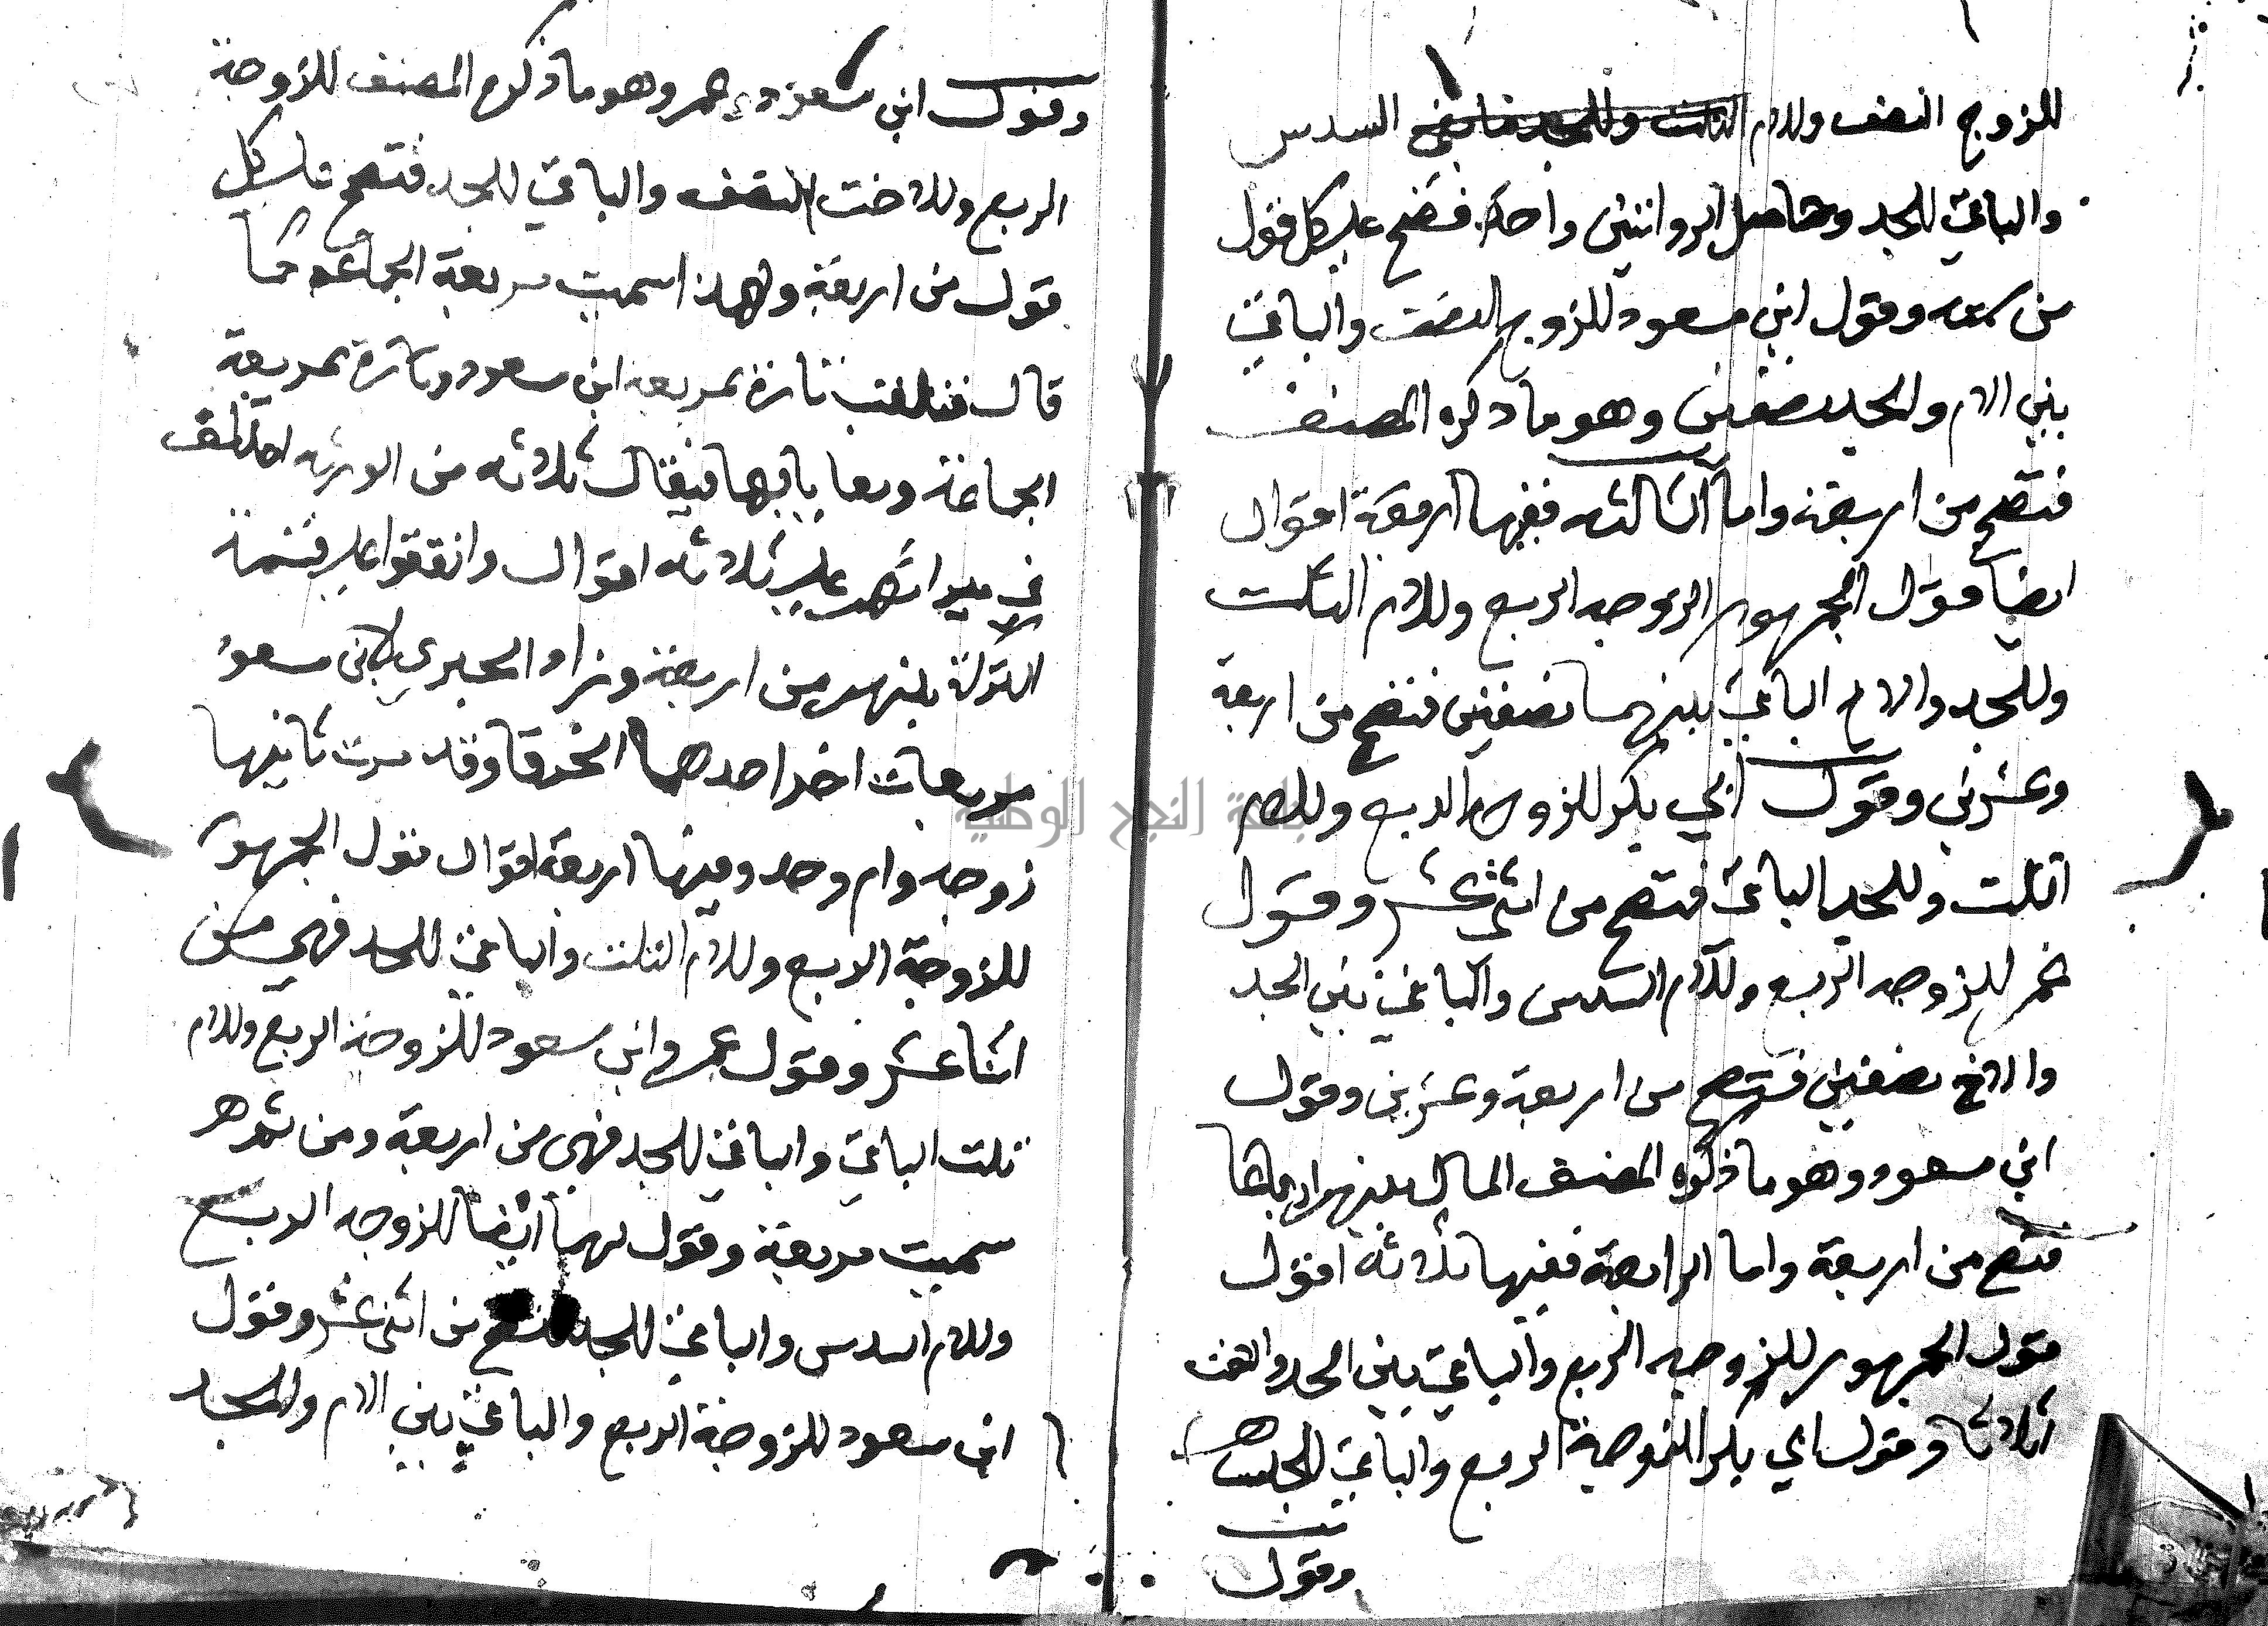 للزوج النصف وللام الثلث وللجد ما بقي السدس
والباقي للجد وحاصل الروايتين واحد فتصح على كل قول
من ستة وقول ابن مسعود للزوج النصف والباقي
بين الام والجد نصفين وهو ما ذكره المصنف
فتصح من اربعة واما الثالثه ففيها اربعة اقوال
ايضا قول الجمهور الزوجه الربع وللام الثلث
وللجد والاخ الباقي بينهما نصفين فتصح من اربعة
وعشرين وقول ابي بكر للزوجه الربع وللام
الثلث وللجد الباقي فتصح من اثني عشر وقول
عمر للزوجه الربع وللام السدس والباقي بين الجد
والاخ نصفين فتصح من اربعة وعشرين وقول
ابن مسعود وهو ما ذكره المصنف المال بينهم ارباعا
فتصح من اربعة واما الرابعة ففيها ثلاثه اقول
قول الجمهور للزوجه الربع والباقي بين الجد والاخت
اثلاثا وقول ابي بكر للزوجة الربع والباقي للجد
وقول
وقول ابن مسعود وعمر وهو ما ذكره المصنف للزوجة
الربع وللاخت النصف والباقي للجد فتصح على كل
قول من اربعة ولهذا سميت مربعة الجماعة كما
قال فتلقب تارة بمربعة ابن مسعود وتارة بمربعة
الجماعة ويعايا بها فيقال ثلاثه من الورثه اختلف
في ميراثهم على ثلاثه اقوال واتفقوا على قسمة
التركة بينهم من اربعة وزاد الحبري لابن مسعود
مربعات اخر احدهما الخرقا وقد مرت ثانيها
زوجه وام وجد وفيها اربعة اقوال قول الجمهور
للزوجة الربع وللام الثلث والباقي للجد فهي من
اثنا عشر وقول عمر وابن مسعود للزوجة الربع وللام
ثلث الباقي والباقي للجد فهي من اربعة ومن ثم
سميت مربعة وقول لهما ايضا للزوجه الربع
وللام السدس والباقي للجد فتصح من اثني عشر وقول
ابن مسعود للزوجة الربع والباقي بين الام والجد
جامعة النجاح الوطنية